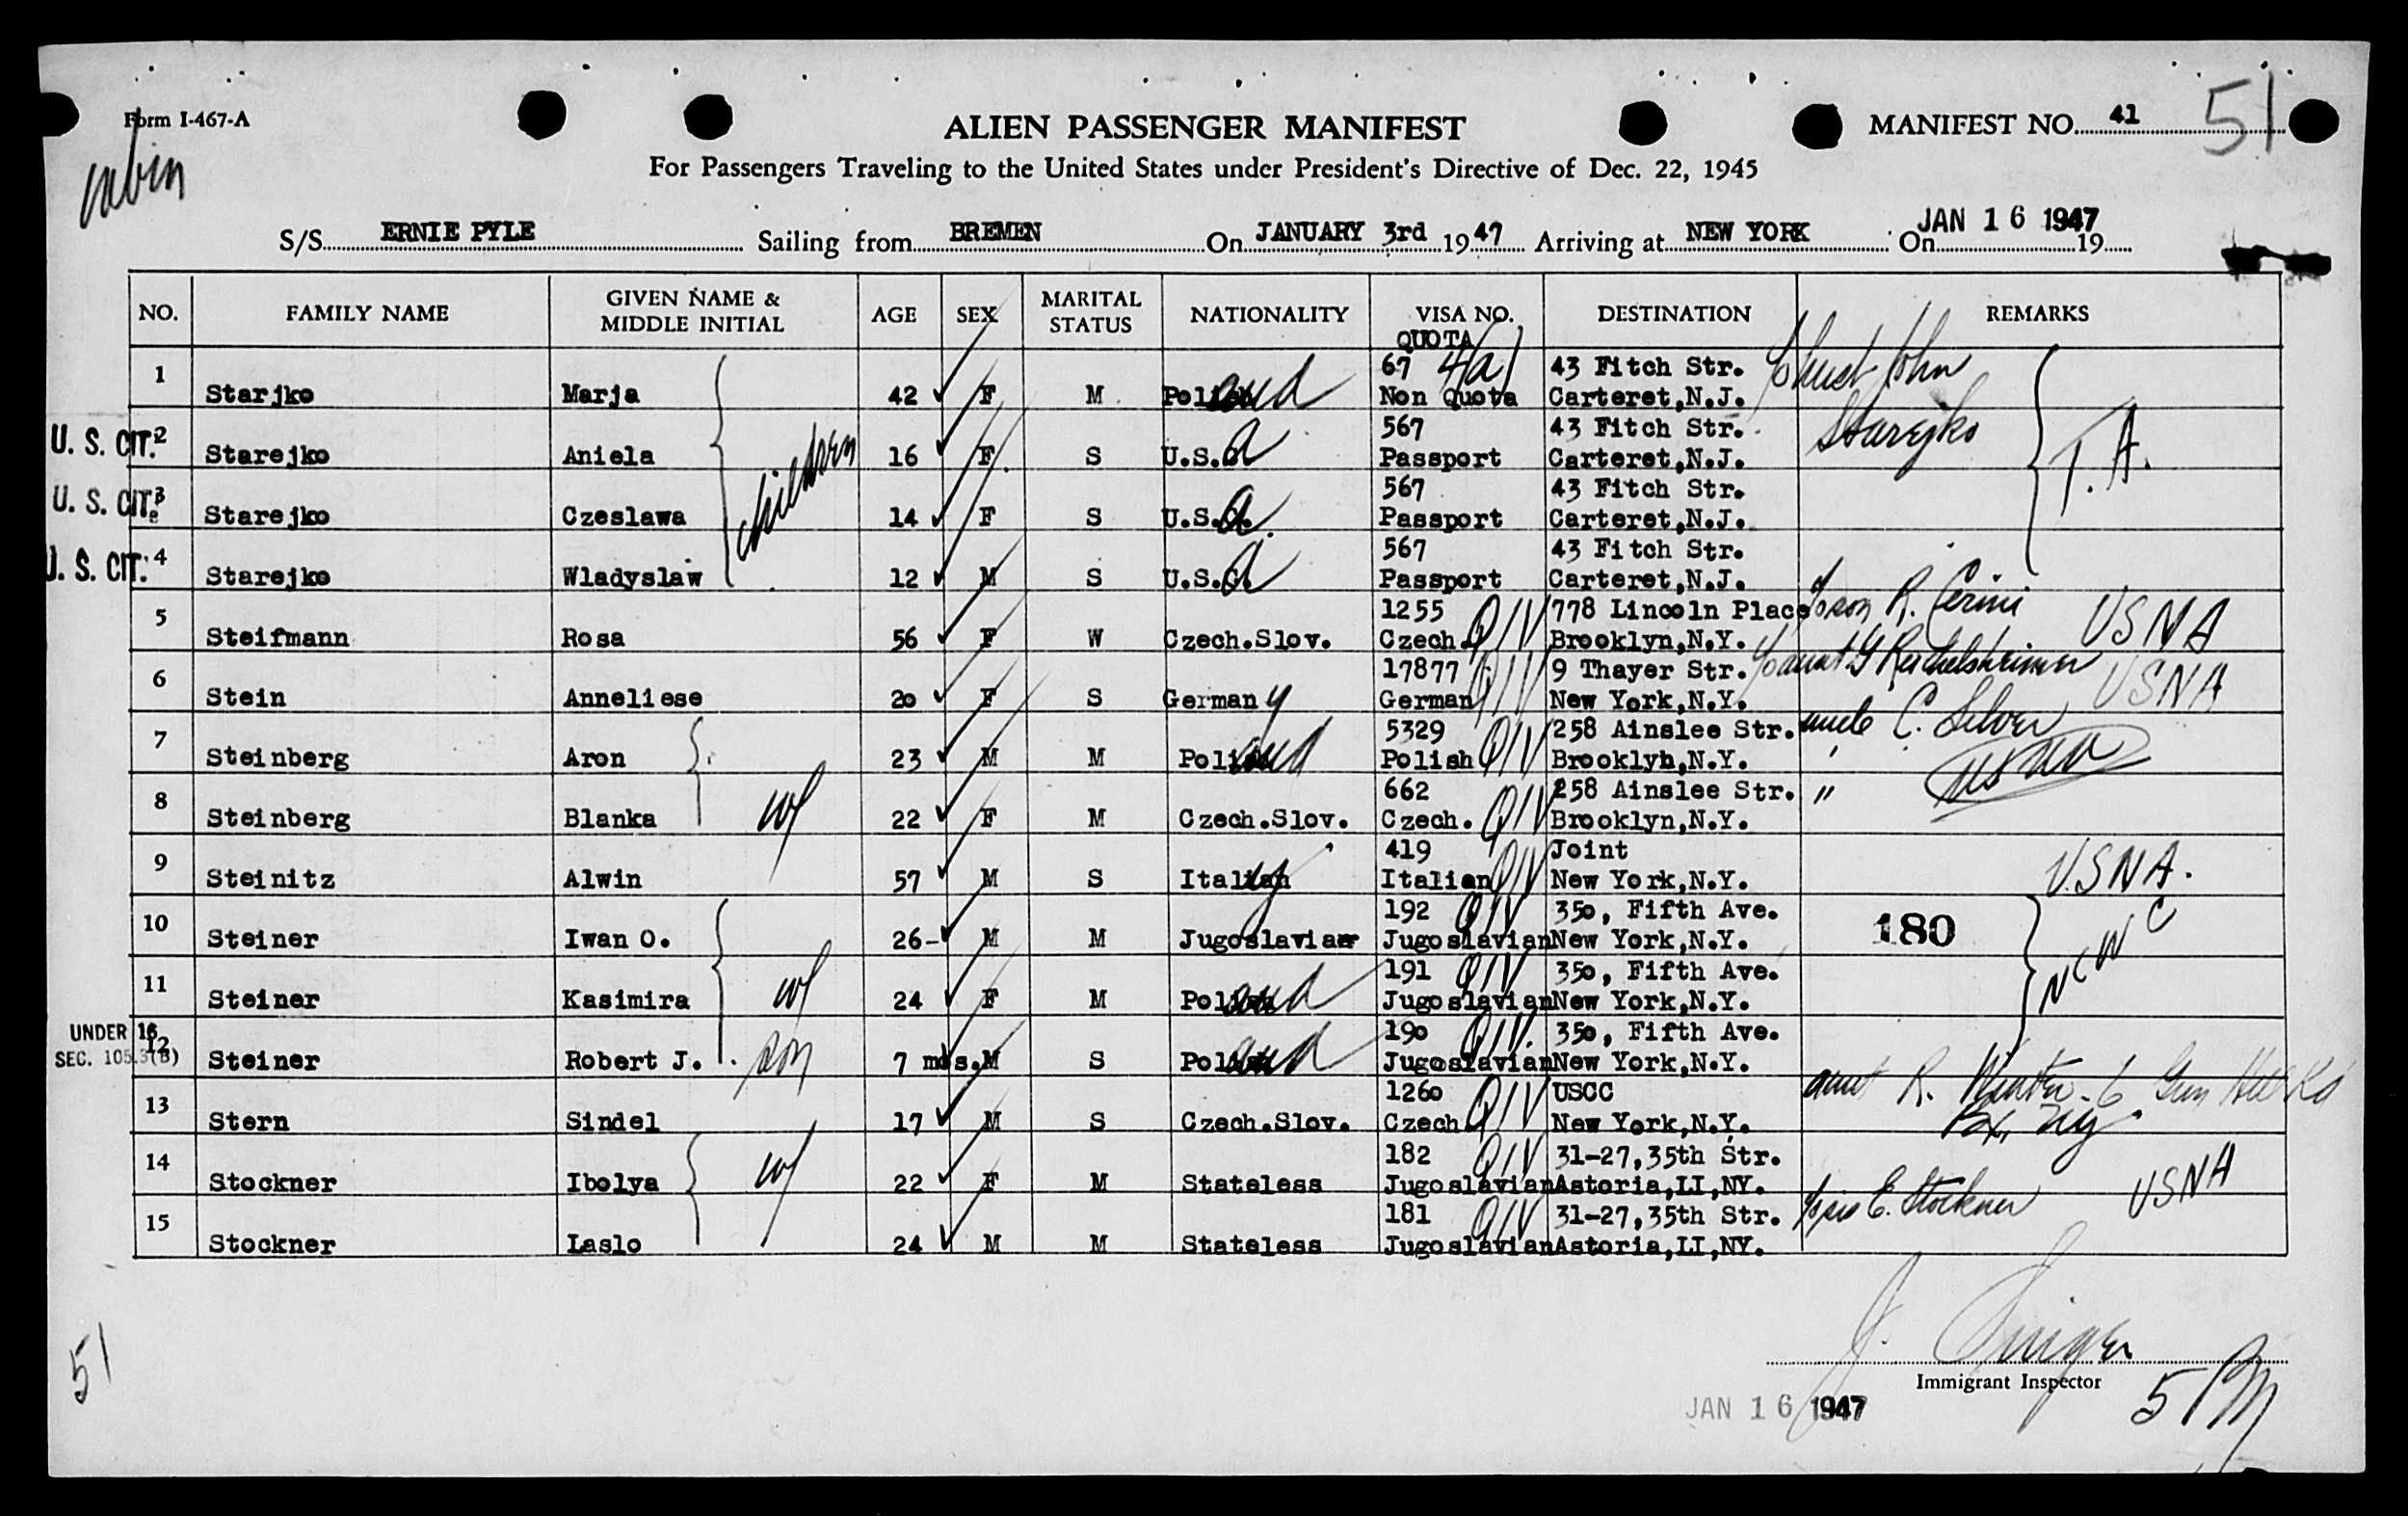 Form I-467-A
cabin
ALIEN PASSENGER MANIFEST
MANIFEST NO. 41 51
For Passengers Traveling to the United States under President's Directive of Dec. 22, 1945
S/S ERNIE PYLE Sailing from BREMEN On JANUARY 3rd 1947 Arriving at NEW YORK On JAN 16 1947 19
NO. FAMILY NAME GIVEN NAME & MIDDLE INITIAL AGE SEX MARITAL STATUS NATIONALITY VISA NO. DESTINATION REMARKS
QUOTA
1 67 4(a) 43 Fitch Str. husb John
Starjko Marja 42 F M Poland Non Quota Carteret,N.J. Starejko
U. S. CIT. 2 567 43 Fitch Str. T.A.
Starejko Aniela 16 F S U.S.A Passport Carteret,N.J.
U. S. CIT. 3 children 567 43 Fitch Str.
Starejko Czeslawa 14 F S U.S.A. Passport Carteret,N.J.
U. S. CIT. 4 567 43 Fitch Str.
Starejko Wladyslaw 12 M S U.S.A Passport Carteret,N.J.
5 1255 QIV 778 Lincoln Place son R. Cerini USNA
Steifmann Rosa 56 F W Czech.Slov. Czech. Brooklyn,N.Y.
6 17877 QIV 9 Thayer Str. aunt G Reichelsheimer USNA
Stein Anneliese 20 F S Germany German New York,N.Y.
7 5329 QIV 258 Ainslee Str. uncle C. Silver
Steinberg Aron 23 M M Poland Polish Brooklyn,N.Y. " USNA
8 w/ 662 QIV 258 Ainslee Str. "
Steinberg Blanka 22 F M Czech.Slov. Czech. Brooklyn,N.Y.
9 419 QIV Joint USNA.
Steinitz Alwin 57 M S Italy Italian New York,N.Y.
10 192 QIV 350, Fifth Ave. 180 NCWC
Steiner Iwan O. 26- M M Jugoslavia Jugoslavian New York,N.Y.
11 w/ 191 QIV 350, Fifth Ave.
Steiner Kasimira 24 F M Poland Jugoslavian New York,N.Y.
UNDER 16 SEC. 105.3(B) 12 son 190 QIV. 350, Fifth Ave.
Steiner Robert J. 7 mos. M S Poland Jugoslavian New York,N.Y.
13 1260 QIV USCC aunt R. Winter - 6 Gun Hill Rd
Stern Sindel 17 M S Czech.Slov. Czech New York,N.Y. Bx, NY
14 w/ 182 QIV 31-27,35th Str. USNA
Stockner Ibolya 22 F M Stateless Jugoslavian Astoria,LI,NY.
15 181 QIV 31-27,35th Str. sis E. Stockner
Stockner Laslo 24 M M Stateless Jugoslavian Astoria,LI,NY.
J. Singer
Immigrant Inspector
51 JAN 16 1947 5 PM